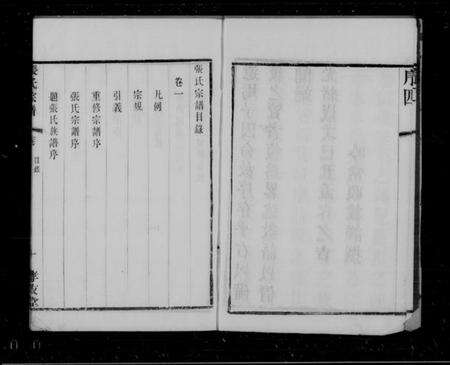 序四
張氏宗譜目錄
卷一
凡例
宗規
引義
重修宗譜序
張氏宗譜序
題張氏族譜序
張氏宗譜
目錄
孝友堂